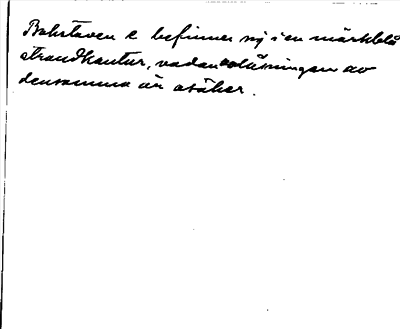 Bokstaven e befinner sig i en märkblå
strandkantur, vadan avläsningen av
densamma är osäker.